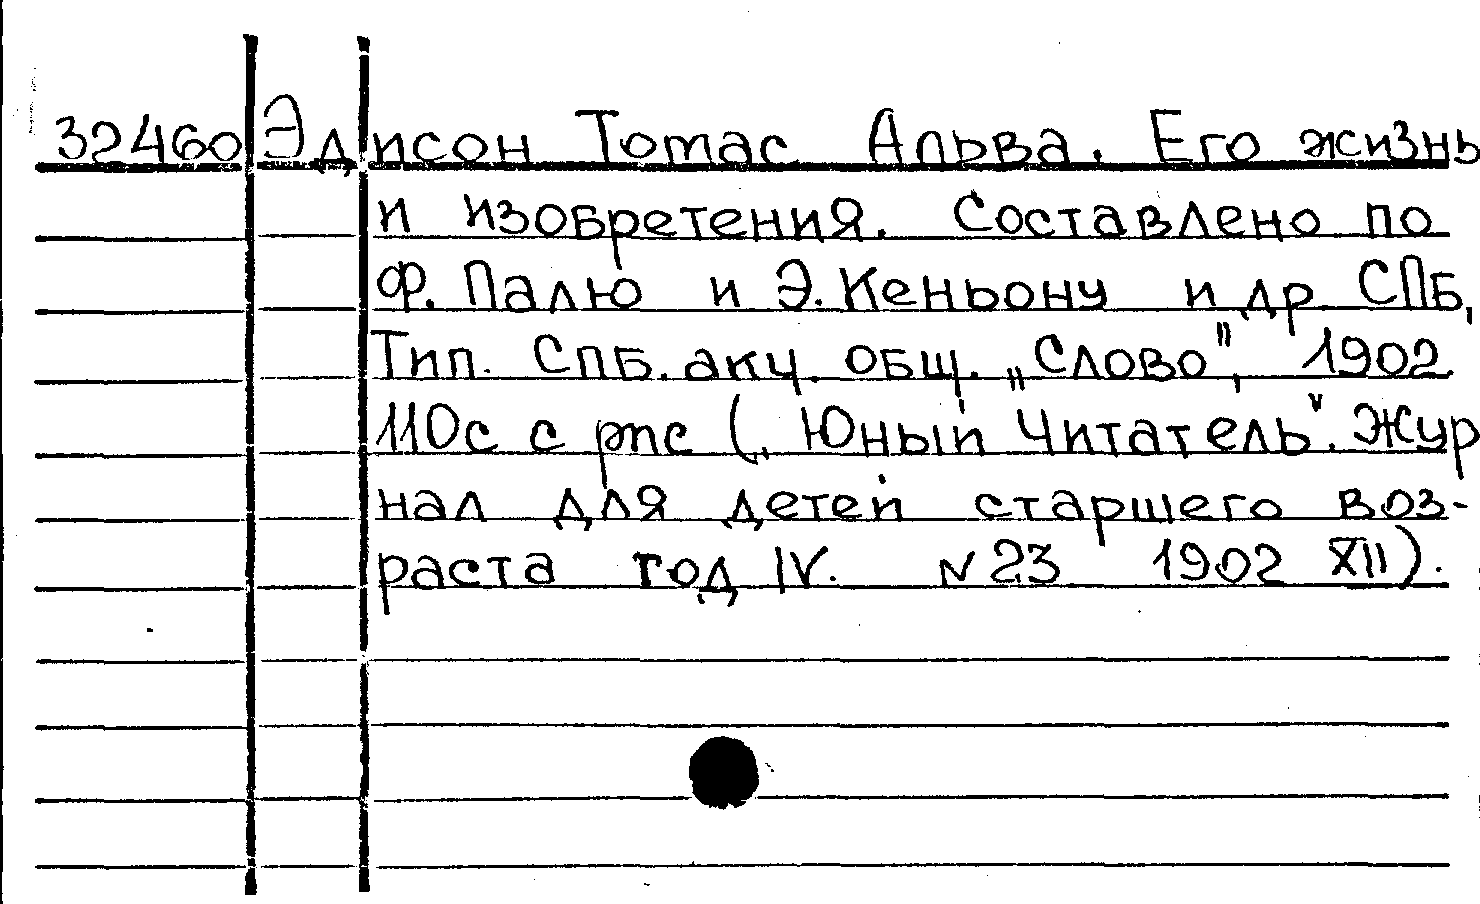 32460 Эдисон Томас Альва. Его жизнь
и изобретения. Составлено по
Ф. Палю и Э. Кеньону и др. СПБ,
Тип. СПБ. акц. общ. „Слово", 1902.
110с с рис („Юный Читатель". Жур
нал для детей старшего воз-
раста год IV. N 23 1902 XII).